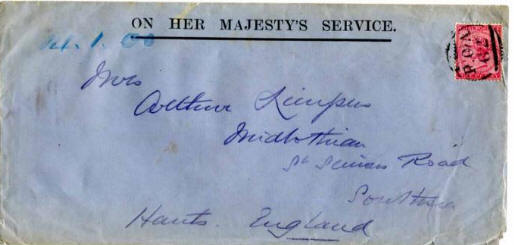 ON HER MAJESTY'S SERVICE.
Mrs
Arthur Limpus
Midlothian
St Simons Road
Southsea
Hants. England